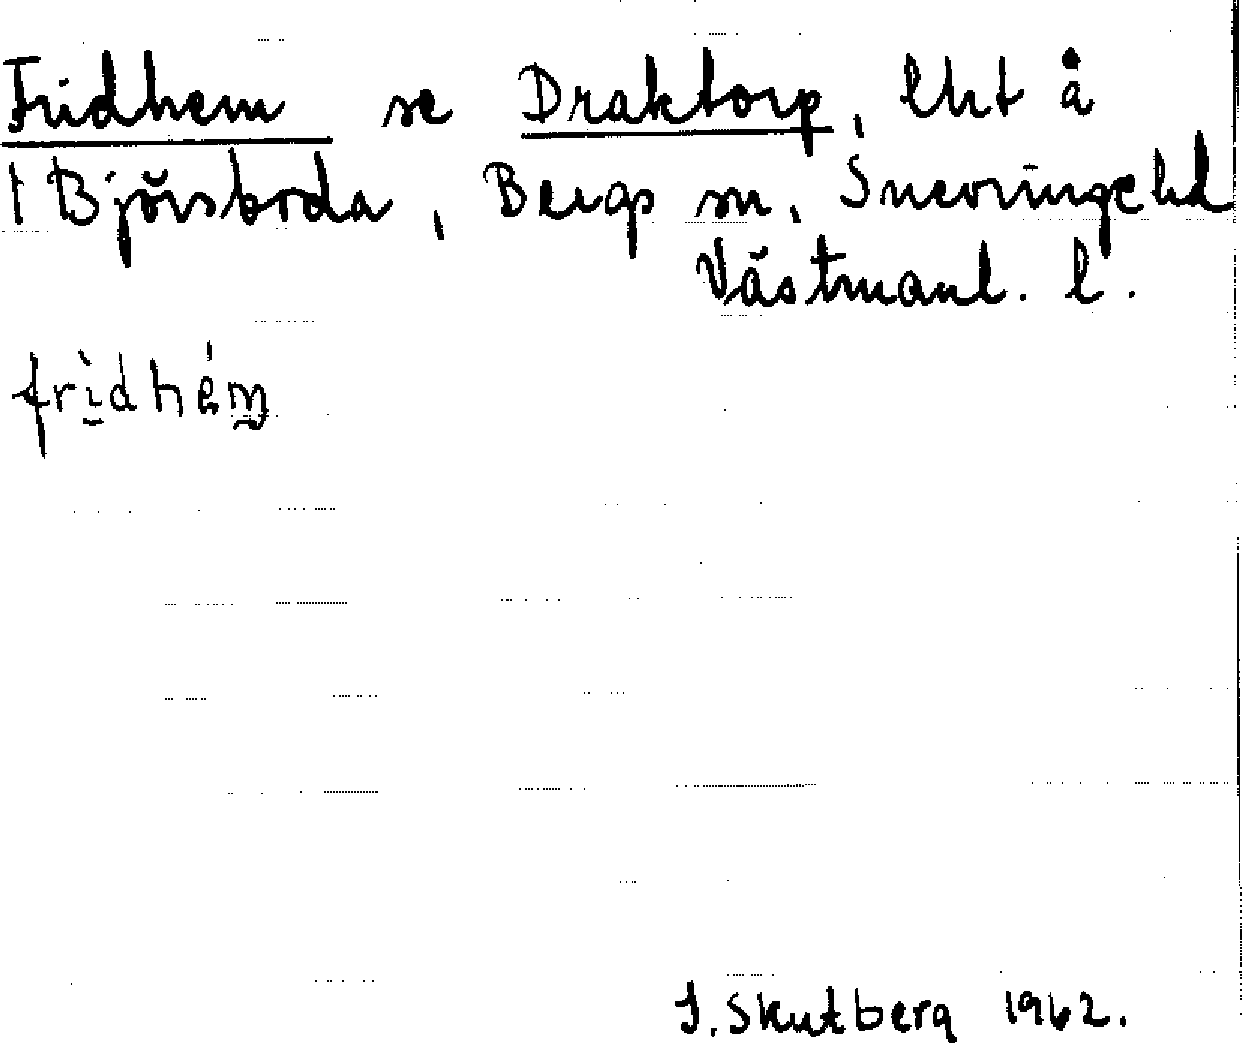 Fridhem se Draktorp, lht å
1 Björsboda, Bergs sn, Snevringe hd
Västmanl. l.
fridhém
J. Skutberg 1962.